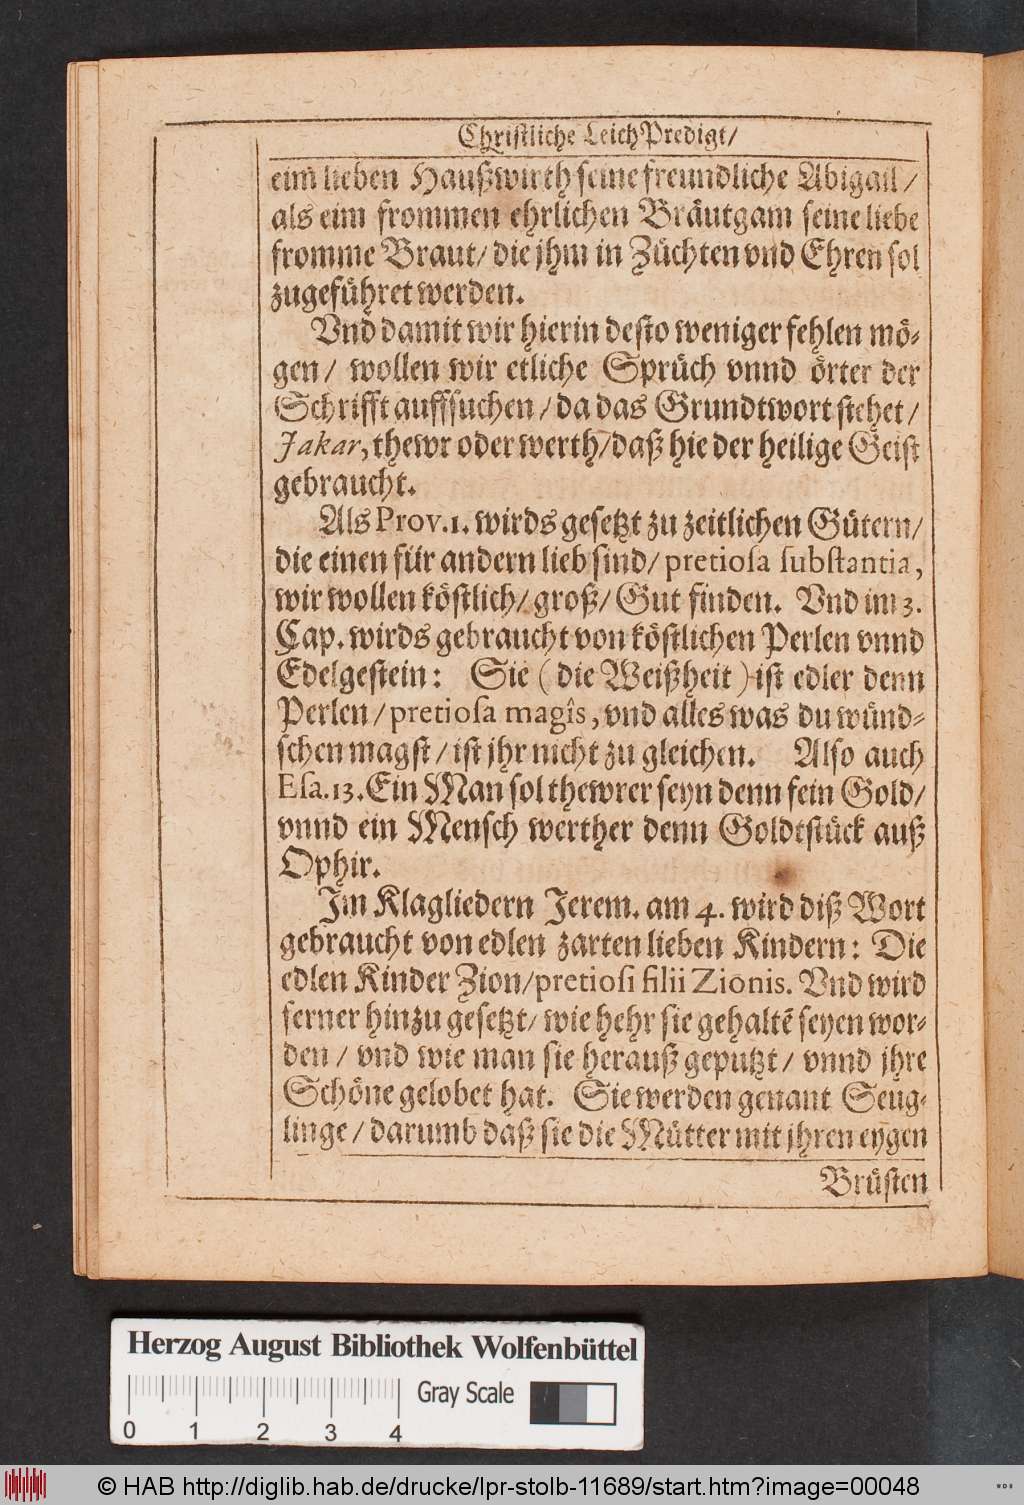 Christliche LeichPredigt/
eim lieben Haußwirth seine freundliche Abigail/
als eim frommen ehrlichen Bräutgam seine liebe
fromme Braut/ die jhm in Züchten vnd Ehren sol
zugeführet werden.
Vnd damit wir hierin desto weniger fehlen mö-
gen/ wollen wir etliche Sprüch vnnd örter der
Schrifft auffsuchen/ da das Grundtwort stehet/
Jakar, thewr oder werth/ daß hie der heilige Geist
gebraucht.
Als Prov. 1. wirds gesetzt zu zeitlichen Gütern/
die einen für andern lieb sind/ pretiosa substantia,
wir wollen köstlich/ groß/ Gut finden. Vnd im 3.
Cap. wirds gebraucht von köstlichen Perlen vnnd
Edelgestein: Sie (die Weißheit) ist edler denn
Perlen/ pretiosa magîs, vnd alles was du wünd-
schen magst/ ist jhr nicht zu gleichen. Also auch
Esa. 13. Ein Man sol thewrer seyn denn fein Gold/
vnnd ein Mensch werther denn Goldtstück auß
Ophir.
Im Klagliedern Jerem. am 4. wird diß Wort
gebraucht von edlen zarten lieben Kindern: Die
edlen Kinder Zion/ pretiosi filii Zionis. Vnd wird
ferner hinzu gesetzt/ wie hehr sie gehaltē seyen wor-
den/ vnd wie man sie herauß geputzt/ vnnd jhre
Schöne gelobet hat. Sie werden genant Seug-
linge/ darumb daß sie die Mütter mit jhren eygen
Brüsten
Herzog August Bibliothek Wolfenbüttel
Gray Scale
0 1 2 3 4
© HAB http://diglib.hab.de/drucke/lpr-stolb-11689/start.htm?image=00048